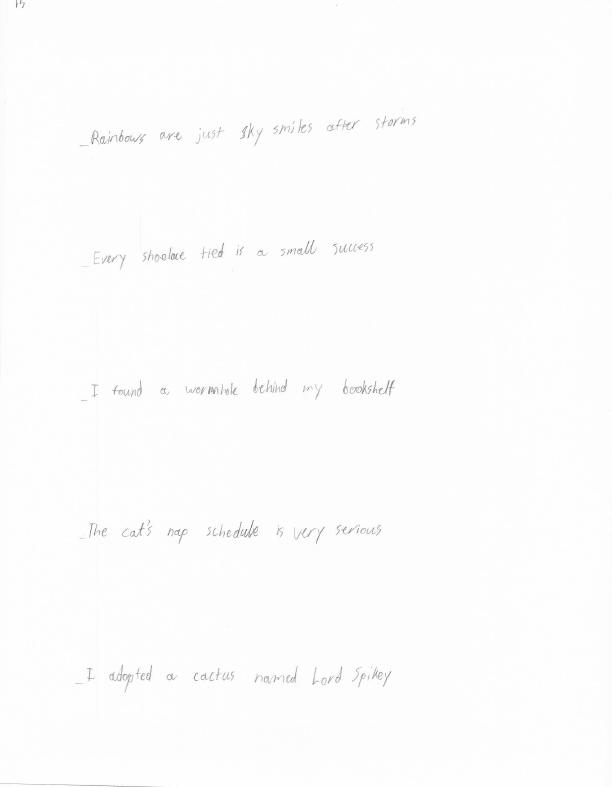 _Rainbows are just sky smiles after storms
_Every shoelace tied is a small success
_I found a wormhole behind my bookshelf
_The cat's nap schedule is very serious
_I adopted a cactus named Lord Spikey